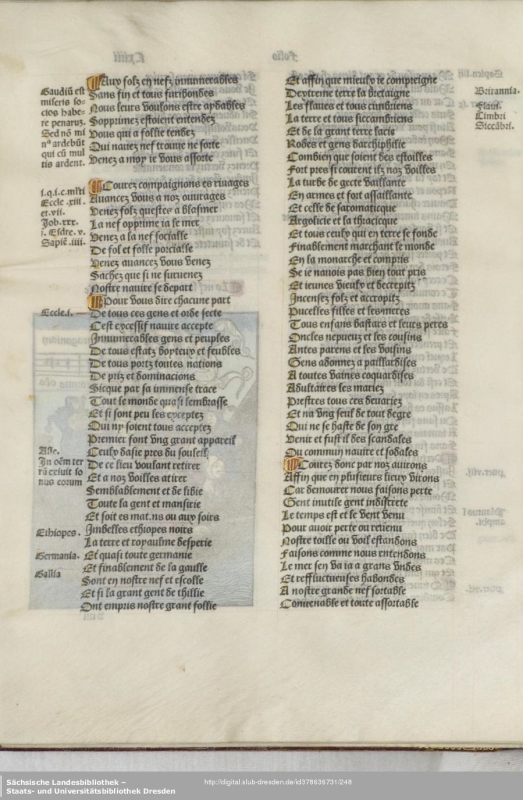 Gaudiũ est
miseris so-
cios habe-
re penarũ.
Sed nõ mi
nus ardebũt
qui cũ mul
tis ardent.
Eccle. xiii.
et .vii.
Job. xxx.
i. Esdre. v.
Sapiẽ. iiii.
Eccle. i.
In oẽm ter
rã exiuit so
nus eorum
Ethiopes.
Germania.
Gallia
Sans fin et tous furibondes
Nous leurs voulons estre aydables
Supprimez estoient entendez
Vous qui a follie tendez
Qui nauez nef trouue ne sorte
Venez a moy ie vous assorte
Acourez compaignons es riuages
Auancez vous a noz ouurages
Venez folz questes a blasmer
La nef opprime ia le mer
Venez a la nef socialle
De fol et folle porcialle
Venez auancez vous venez
Sachez que si ne suruenez
Nostre nauire se depart
Pour vous dire chacune part
De tous ces gens et orde secte
Cest excessif nauire accepte
Innumerables gens et peuples
De tous estatz boyteux et feubles
De tous portz toutes nations
De pris et dominacions
Sicque par sa immense trace
Tout le monde quasi lembrasse
Et si sont peu les exceptez
Qui ny soient tous acceptez
Premier font vng grant appareil
Ceulx dasie pres du souleil
De ce lieu voulant retirer
Et a noz voilles atirer
Semblablement et de libie
Toute la gent et mansirie
Et soit es matins ou aux soirs
Imbelles ethiopes noirs
La terre et royaulme desperie
Et quasi toute germanie
Et finablement de la gaulle
Sont en nostre nef et escolle
Et si la grant gent de thillie
Ont empris nostre grant follie
Et affin que mieulx ie compreigne
Dextreme terre la bretaigne
Les flaues et tous cimbriens
La terre et tous siccambriens
Et de la grant terre lacis
Rodes et gens barchiphilie
Combien que soient des estoilles
Fort pres si courent ilz noz voilles
La turbe de gecte vaillante
En armes et fort assaillante
Et celle de saromaticque
Argolicie et la thracicque
Et tous ceulx qui en terre se fonde
Finablement marchant le monde
En la monarche et compris
Se ie nauois pas bien tout pris
Et ieunes vieulx et decrepitz
Incensez folz et accropitz
Pucelles filles et les meres
Tous enfans bastars et leurs peres
Oncles nepueux et les cousins
Antes parens et les voisins
Gens abonnez a paillardises
A toutes vaines coquardises
Adulteres les mariez
Prestres tous ces desuariez
Et na vng seul de tout degre
Qui ne se haste de son gre
Venir et fust il des scandales
Du commun nauire et sodales
Acourez donc par noz auirons
Affin que en plusieurs lieux virons
Car demourer nous faisons perte
Gent inutile gent indiscrete
Le temps est et le vent venu
Pour auoir perte ou reuenu
Nostre toille ou voil estandons
Faisons comme nous entendons
Le mer sen va ia a grans vndes
Et reffluctueuses habondes
A nostre grande nef sortable
Conuenable et toute assortable
Britannia.
Flaui.
Cimbri
Siccãbri.
Sächsische Landesbibliothek –
Staats- und Universitätsbibliothek Dresden
http://digital.slub-dresden.de/id378636731/248